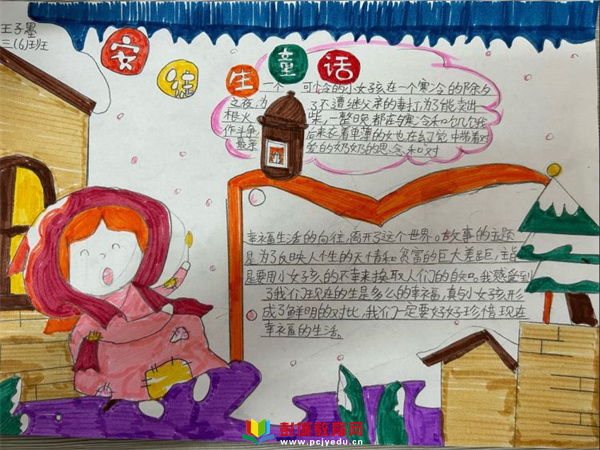 王子墨
三(6)班
安徒生童话
一个 可怜的小女孩,在一个寒冷的除夕
之夜,为 了不遭继父亲的毒打,为了能卖出
根火 柴,一整日晚都在与寒冷和饥饿
作斗争 后来衣着单薄的女也在幻觉中带着对
最亲 爱的奶奶的思念和对
幸福生活的向往离开了这个世界。故事的主题
是为了反映人个生的无情和贫富的巨大差距,主旨
是要用小女孩的不幸来换取人们的自知。我感受到
了我们现在的生是多么的幸福,真与小女孩形
成了鲜明的对比,我们一定要好好珍惜现在
幸福的生活。
www.pcjyedu.cn